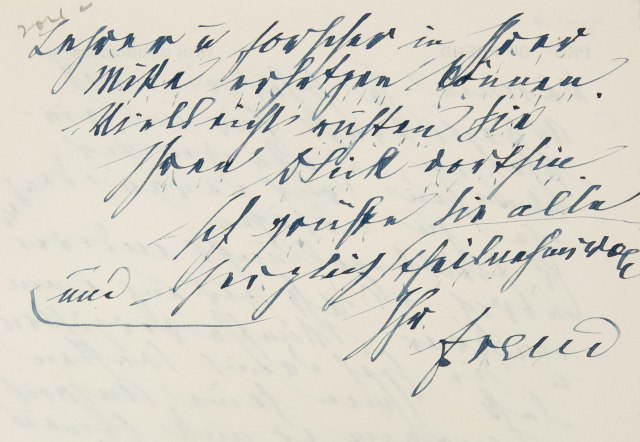 Lehrer u Forscher in Ihrer
Mitte ersetzen können.
Vielleicht richten Sie
Ihren Blick dorthin
Ich grüße Sie alle
und herzlich theilnahmsvoll
Ihr
Freud